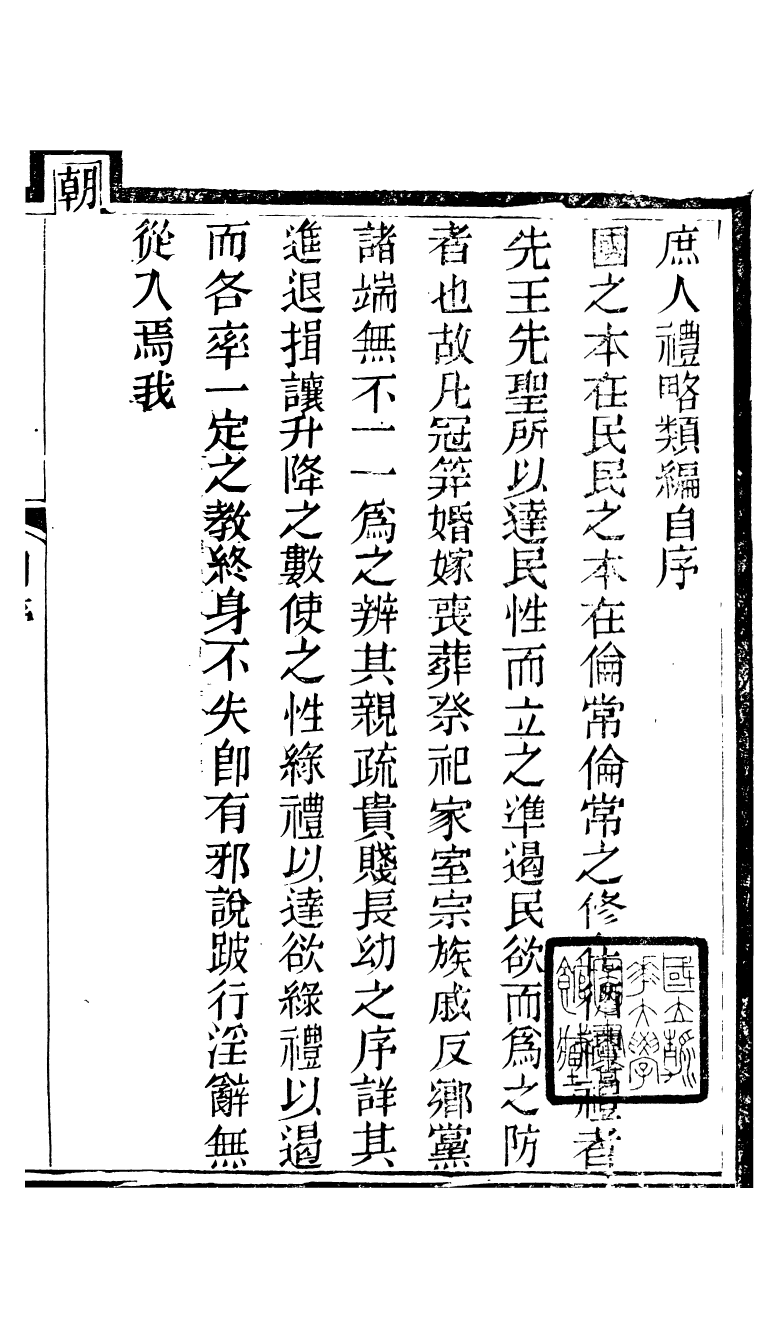 庶人禮略類編自序
國之本在民民之本在倫常倫常之修禮者
先王先聖所以達民性而立之準遏民欲而爲之防
者也故凡冠笄婚嫁喪葬祭祀家室宗族戚反鄉黨
諸端無不一一爲之辨其親疏貴賤長幼之序詳其
進退揖讓升降之數使之性緣禮以達欲緣禮以遏
而各率一定之教終身不失卽有邪說跛行淫辭無
從入焉我
朝